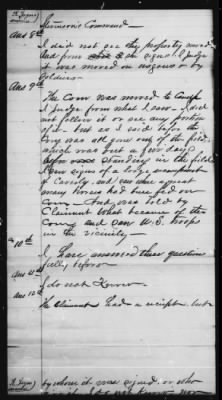 Command
Ans 8th
I did not see the property moved
and from the signs I judge
it was moved on wagons or by
Soldiers
Ans 9th
The Corn was moved to Camp
I judge from what I saw. I did
not follow it or see any portion
of it - but as I said before the
Corn was all gone out of the field
which was just a few days
standing in the field
I saw signs of a large encampment
of Cavalry, and saw where a great
many horses had been fed on
Corn - And was told by
Claimant what became of the
Corn, and saw U.S. troops
in the vicinity -
" 10th
I have answered these question
fully before
Ans 11th
I do not know
Ans 12th
The Claimant had a receipt but
by whom it was signed, or who